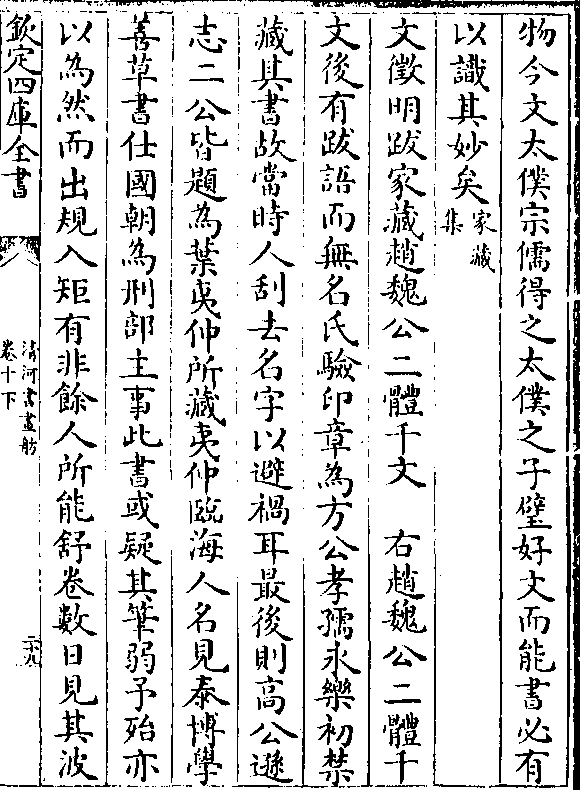 物今文太僕宗儒得之太僕之子璧好文而能書必有
以識其妙矣家藏集
文徵明跋家藏趙魏公二體千文　右趙魏公二體千
文後有跋語而無名氏驗印章為方公孝孺永樂初禁
藏其書故當時人刮去名字以避禍耳最後則高公遜
志二公皆題為葉夷仲所藏夷仲臨海人名見泰博學
善草書仕國朝為刑部主事此書或疑其筆弱予殆亦
以為然而出規入矩有非餘人所能舒卷數日見其波
欽定四庫全書
清河書畫舫
卷十下
二十九